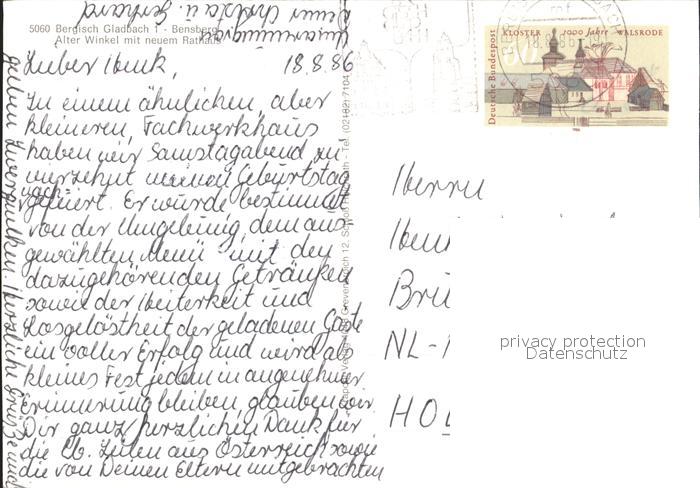 5060 Bergisch Gladbach 1 - Bensberg
Alter Winkel mit neuem Rathaus
Lieber Henk, 18.8.86
In einem ähnlichen, aber
kleineren, Fachwerkhaus
haben wir Samstagabend zu
vierzehnt meinen Geburtstag
nach-
gefeiert. Er wurde bestimmt
von der Umgebung, dem aus-
gewählten Menü mit den
dazugehörenden Getränken
sowie der Heiterkeit und
Losgelöstheit der geladenen Gäste
ein voller Erfolg und wird als
kleines Fest jedem in angenehmer
Erinnerung bleiben, glauben wir.
Dir ganz herzlichen Dank für
die lb. Zeilen aus Österreich sowie
die von Deinen Eltern mitgebrachten
lieben Herzliche Grüße und
Deiner Christa u. Gerhard
Deutsche Bundespost
KLOSTER 1000 Jahre WALSRODE
60
Herrn
Henk
Brü
NL-
HOL
privacy protection
Datenschutz